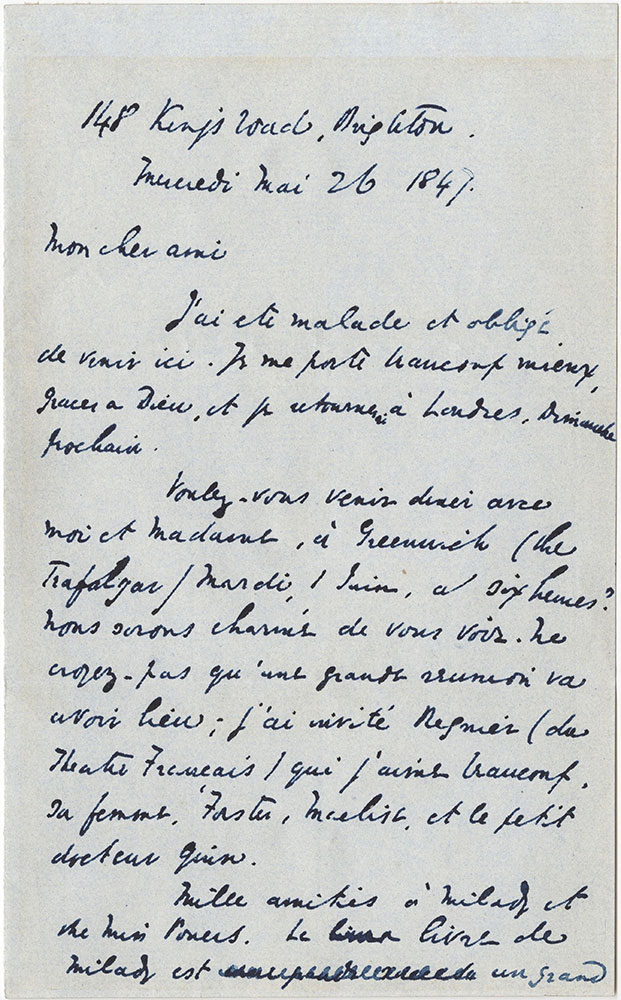 148 Kings road, Brighton.
Mercredi Mai 26 1847.
Mon cher ami
J'ai eté malade et obligé
de venir ici. Je me porte beaucoup mieux,
Graces a Dieu, et je retournerai à Londres, Dimanche
prochain.
Voulez-vous venir diner avec
moi et Madame, à Greenwich (the
Trafalgar) Mardi, 1 Juin, a six heures?
Nous serons charmé de vous voir. Ne
croyez-pas qu'une grande reunion va
avoir lieu; j'ai invité Regnier (du
Theatre Francais) qui j'aime beaucoup,
sa femme, Forster, Maclise, et le petit
docteur Quin.
Mille amitiés à Milady et
the Miss Powers. Le livre de
Milady est un grand